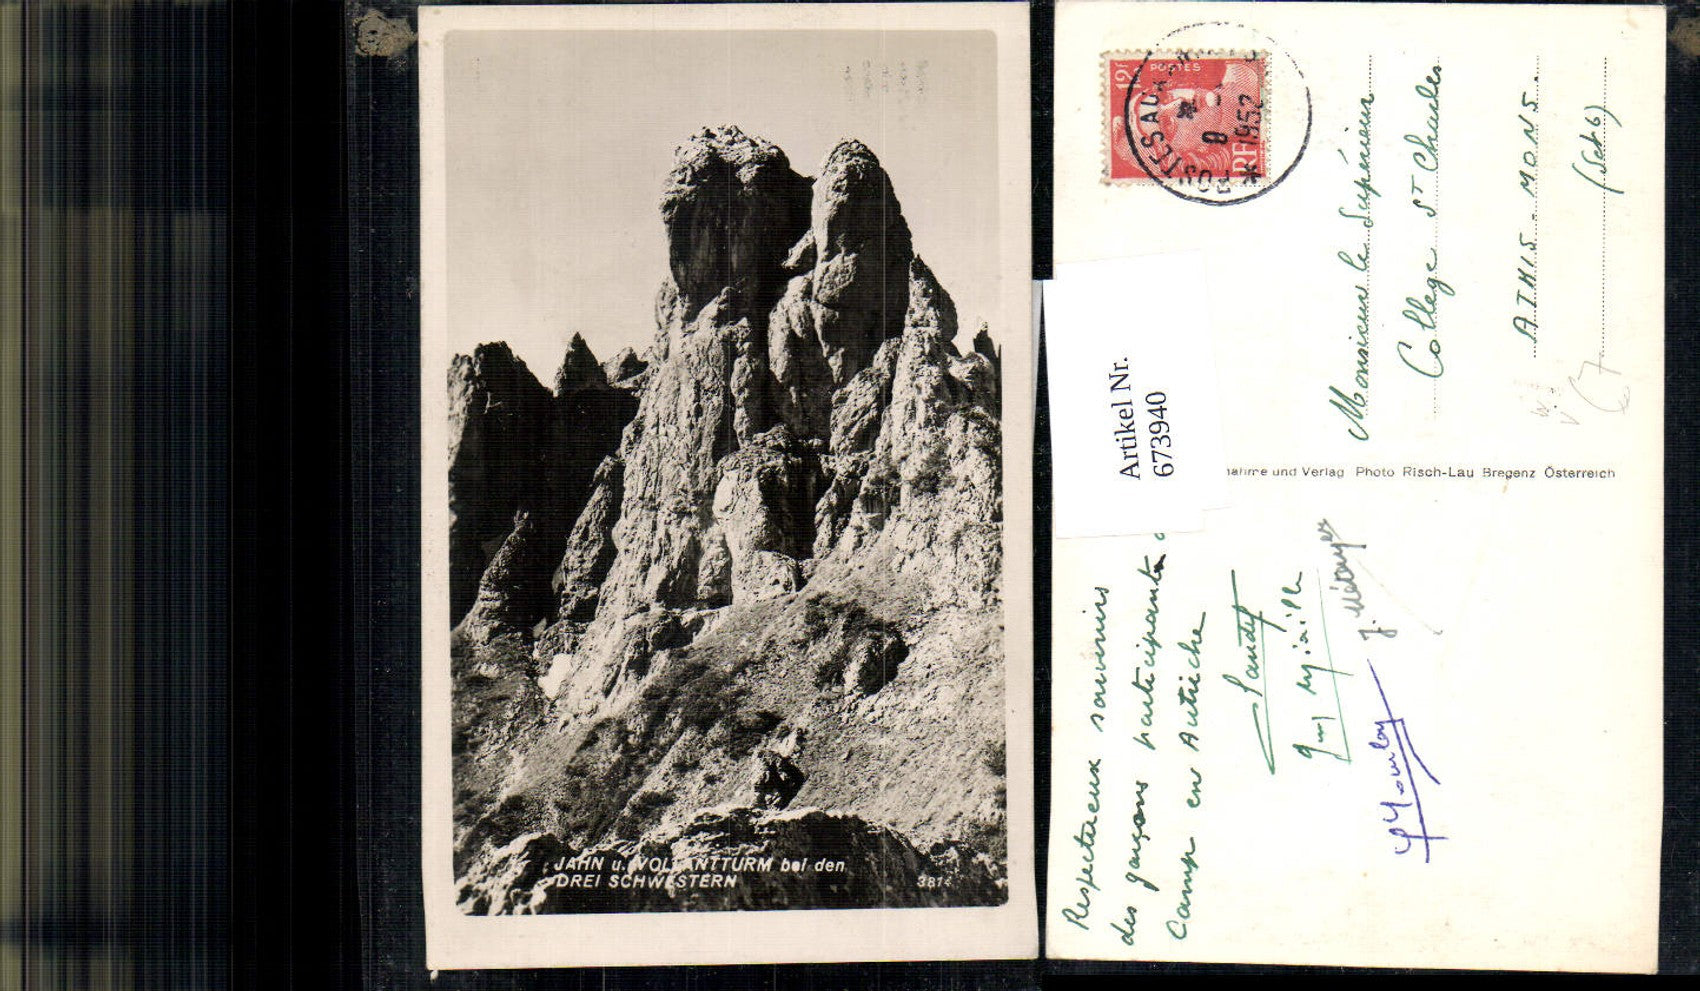 JAHN u. VOLLANTTURM bei den
DREI SCHWESTERN
3814
12F
POSTES
RF
POSTES AUX
* 8
* 1952
Monsieur le Supérieur
College St Charles
ATHIS-MONS.
(Set O)
67
Artikel Nr.
673940
nahme und Verlag Photo Risch-Lau Bregenz Österreich
Respectueux souvenirs
des garçons participants
Camp en Autriche